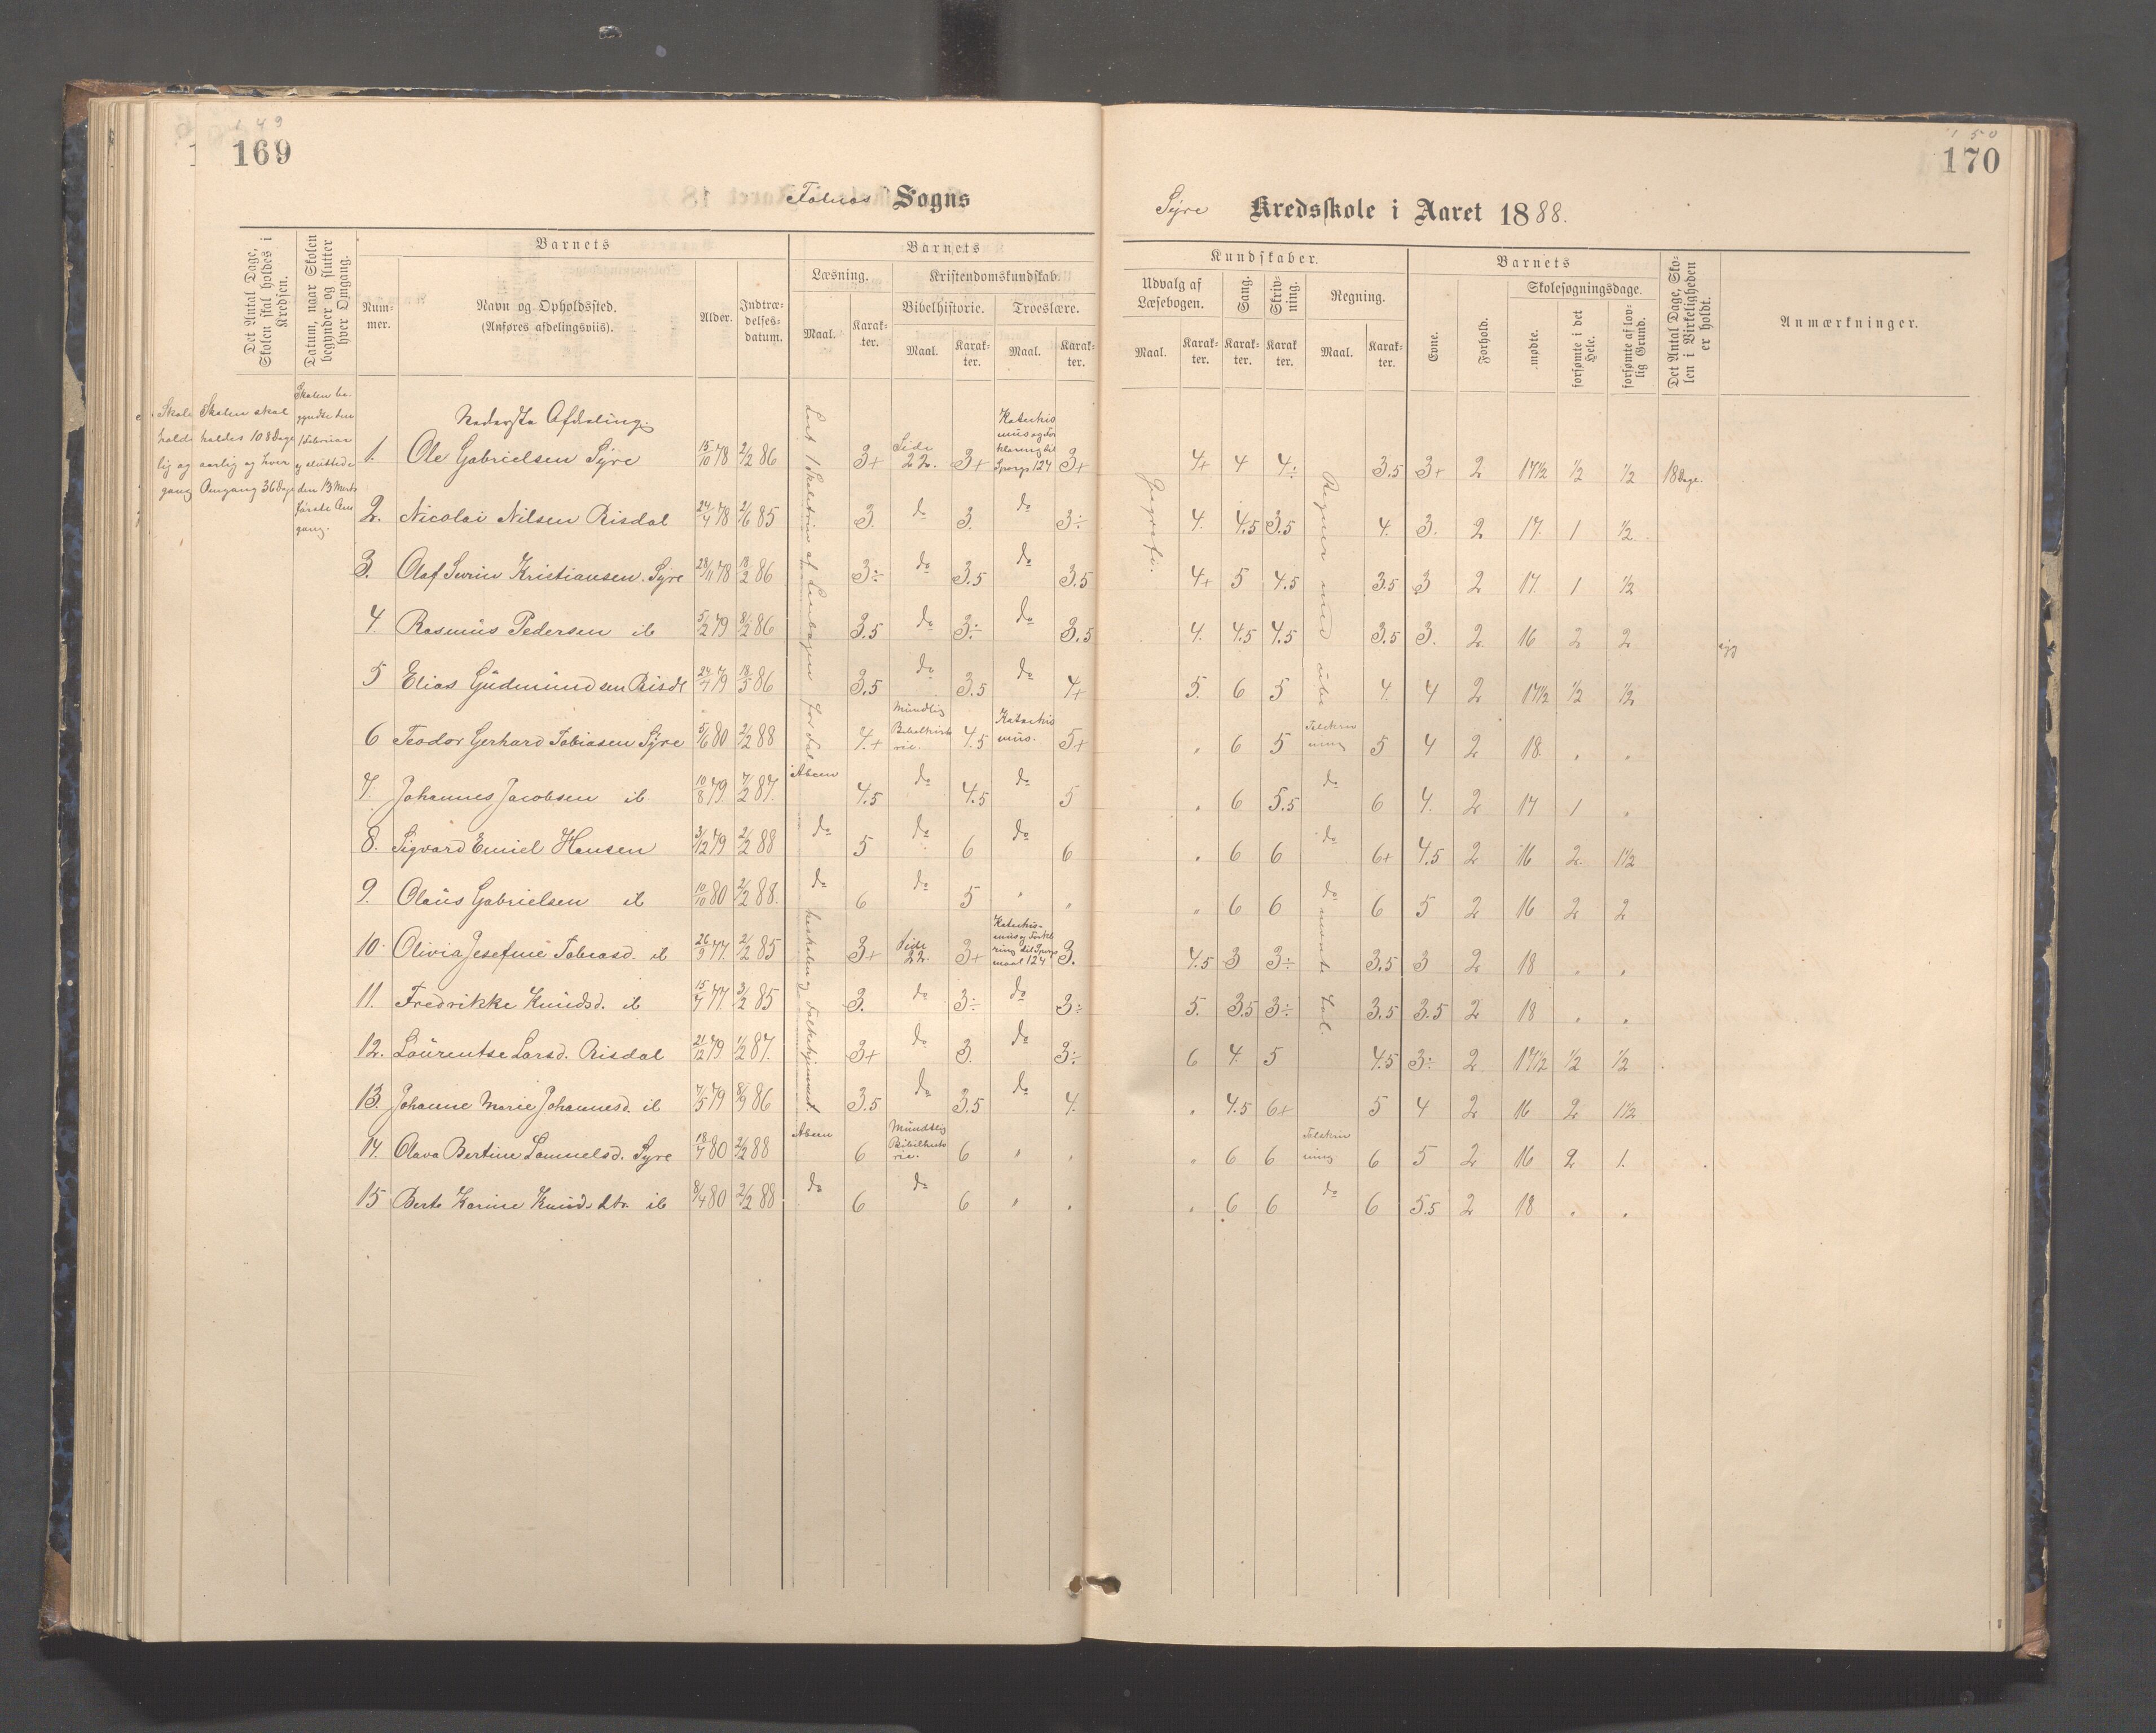 149
169
150
170
Falnæs Sogns
Syre Kredsskole i Aaret 1888.
Det Antal Dage, Skolen skal holdes i Kredsen.
Datum, naar Skolen begynder og slutter hver Omgang.
Barnets
Num-mer.
Navn og Opholdssted.
(Anføres afdelingsviis).
Alder.
Indtræ-delses-datum.
Barnets
Læsning.
Maal.
Karak-ter.
Kristendomskundskab.
Bibelhistorie.
Maal.
Karak-ter.
Troeslære.
Maal.
Karak-ter.
Kundskaber.
Udvalg af Læsebogen.
Maal.
Karak-ter.
Sang.
Karak-ter.
Skriv-ning.
Karak-ter.
Regning.
Maal.
Karak-ter.
Barnets
Evne.
Forhold.
Skolesøgningsdage.
mødte.
forsømte i det Hele.
forsømte af lov-lig Grund.
Det Antal Dage, Sko-len i Virkeligheden er holdt.
Anmærkninger.
Skolen skal
holdes 108 Dage
aarlig og hver
Omgang 36 Dage
Skolen be-
gyndte den
1 Februar
og sluttede
den 13 Marts
første Om
gang.
Nederste Afdeling.
1. Ole Gabrielsen Syre 15/10 78 2/2 86 3+ Side 22. 3+ Katechismus og Forklaring til Spørgs 124 3+ 4+ 4 4÷ 3.5 3+ 2 17½ ½ ½ 18 Dage.
2. Nicolai Nilsen Risdal 24/4 78 2/6 85 3. do 3. do 3÷ 4. 4.5 3.5 4. 3. 2 17. 1 ½
3. Olaf Sverin Kristiansen. Syre 28/11 78 18/2 86 3÷ do 3.5 do 3.5 4+ 5 4.5 3.5 3 2 17. 1 ½
4. Rasmus Pedersen ib 5/2 79 8/2 86 3.5 do 3÷ do 3.5 4. 4.5 4.5 3.5 3. 2. 16 2 2
5 Elias Gudmundsen Risdl 24/7 79 18/5 86 3.5 do 3.5 do 4+ 5. 6 5 4. 4 2 17½ ½ ½
6 Teodor Gerhard Tobiasen Syre 5/6 80 2/2 88 4.+ Mündlig Bibelhistorie. 4.5 Katechismus. 5+ " 6 5 Talskrivning 5 4 2 18. " "
7. Johannes Jacobsen ib. 10/8 79 7/2 87. Abcen 4.5 do 4.5 do 5 " 6 5.5 do 6 4. 2 17 1 "
8. Sigvard Emiel Hansen 3/12 79 2/2 88 do 5 do 6 do 6 " 6 6 do 6+ 4.5 2 16 2. 1½
9. Olaus Gabrielsen ib 10/10 80 2/2 88. do 6 do 5 " " " 6 6 do 6 5 2 16 2 2
10. Olivia Jesefine Tobiasd. ib 26/9 77. 2/2 85 3+ Side 22. 3+ Katechismus og Forklring til Spørgsmaal 124 3. 4.5 3 3÷ 3.5 3 2 18 " "
11. Fredrikke Knudsd. ib 15/7 77. 3/2 85 3. do 3÷ do 3÷ 5. 3.5 3÷ 3.5 3.5 2 18 " "
12. Laurentse Larsd. Risdal 21/12 79. 1/2 87. 3+ do 3. do 3÷ 6 4. 5 4.5 3÷ 2. 17½ ½ ½
13. Johanne Marie Johannesd. ib 7/5 79 8/9 86 3.5 do 3.5 do 4. " 4.5 6+ 5 4 2 16 2 1½
14. Olava Bertine Samuelsd. Syre 18/7 80 2/2 88 Abcen 6 Mündtlig Bibelhistorie. 6 " " " 6 6 Talskrivning 6 5 2 16 2 1.
15 Berte Karine Knudsdtr. ib 8/4 80 2/2 88 do 6 do 6 " " " 6 6 do 6 5.5 2 18 " "
Læst 1 Skoletrin af Læsebogen for Folkeskolen og Folkehjemmet.
Geografi.
Regner med ube nævnte Tal.